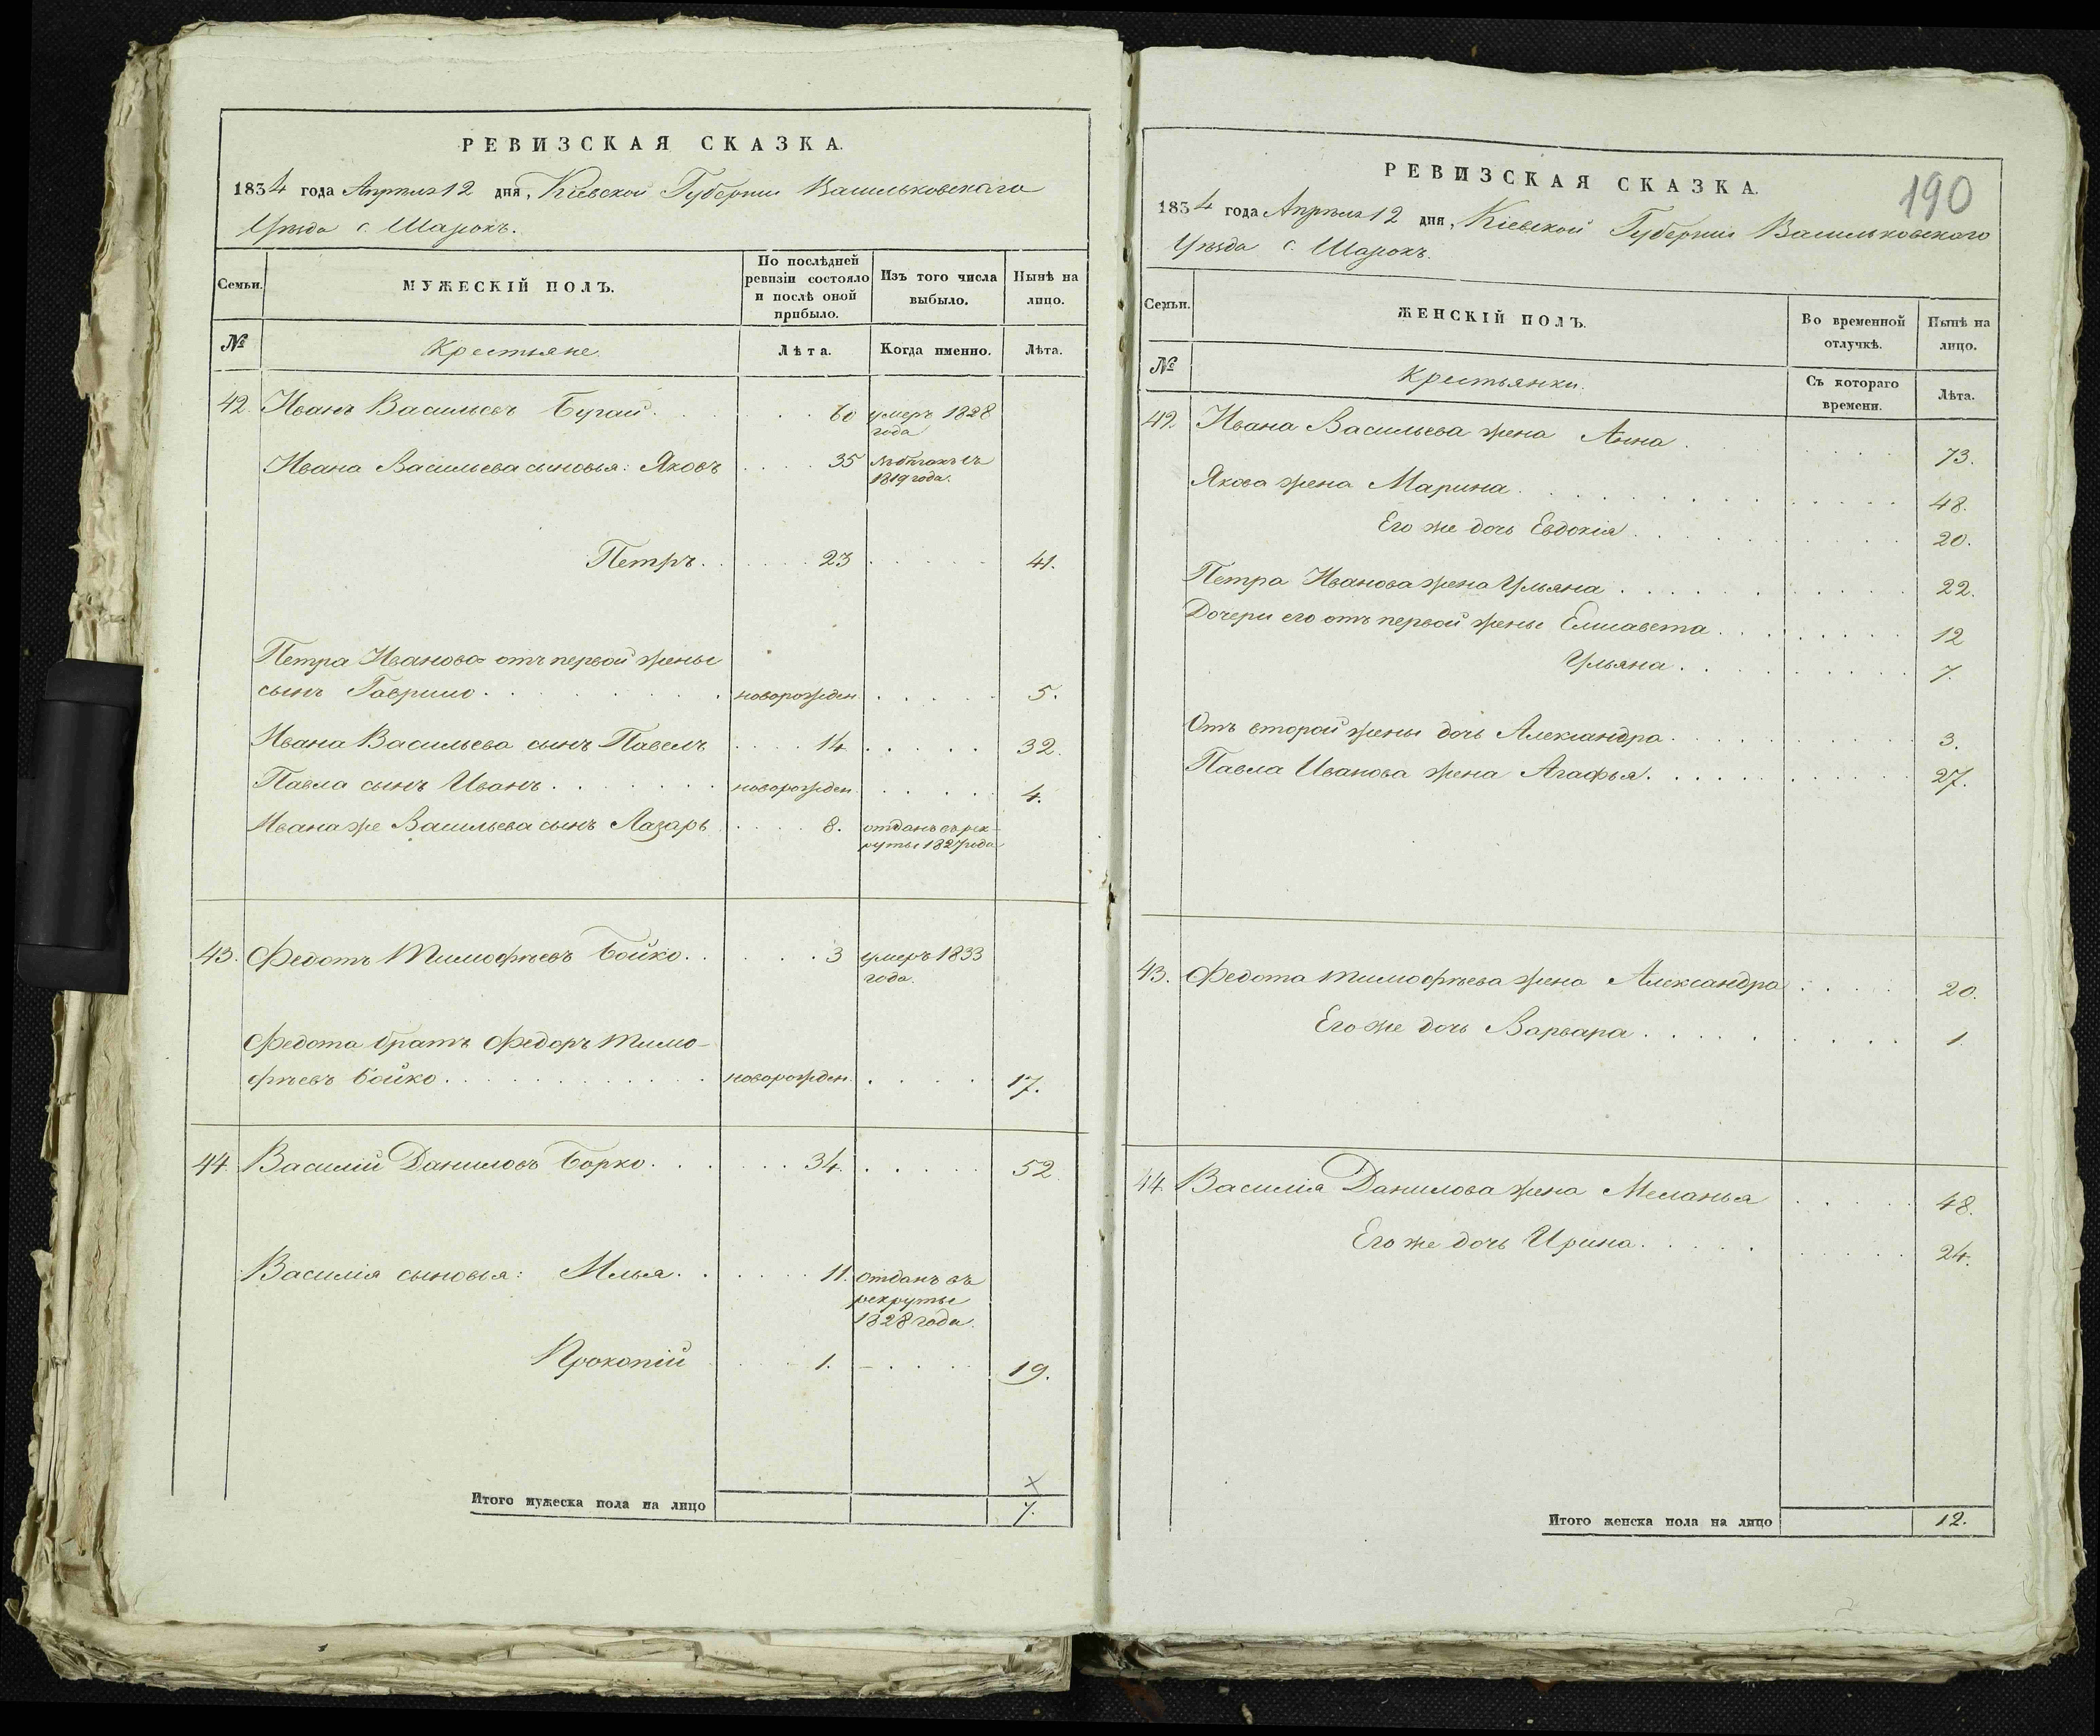 РЕВИЗСКАЯ СКАЗКА.
1834 года Апрѣля 12 дня, Кіевской Губерніи Васильковскаго
Уѣзда с. Шарокъ.
Семьи.
МУЖЕСКІЙ ПОЛЪ.
По послѣдней ревизіи состояло и послѣ оной прибыло.
Изъ того числа выбыло.
Нынѣ на лицо.
№
Крестьяне.
Лѣта.
Когда именно.
Лѣта.
42. Иванъ Васильевъ Бугай. 60 умеръ 1828
года
Ивана Васильева сыновья: Яковъ 35 въ бѣгахъ съ
1819 года.
Петръ. 23 41.
Петра Иванова отъ первой жены
сынъ Гаврило. новорожден 5.
Ивана Васильева сынъ Павелъ 14 32.
Павла сынъ Иванъ. новорожден. 4.
Ивана же Васильева сынъ Лазарь 8. отданъ въ рек-
руты 1827 года
43. Федотъ Тимофѣевъ Бойко. 3 умеръ 1833
года.
Федота братъ Федоръ Тимо-
фѣевъ Бойко. новорожден. 17.
44. Василій Даниловъ Борко. 34. 52.
Василія сыновья: Илья. 11. отданъ въ
рекруты
1828 года.
Прокопій 1. 19.
Итого мужеска пола на лицо 7.
РЕВИЗСКАЯ СКАЗКА.
190
1834 года Апрѣля 12 дня, Кіевской Губерніи Васильковскаго
Уѣзда с. Шарокъ.
Семьи.
ЖЕНСКІЙ ПОЛЪ.
Во временной отлучкѣ.
Нынѣ на лицо.
№
Крестьянки.
Съ котораго времени.
Лѣта.
42. Ивана Васильева жена Анна. 73.
Якова жена Марина. 48.
Его же дочь Евдокія. 20.
Петра Иванова жена Ульяна. 22.
Дочери его отъ первой жены Елисавета. 12
Ульяна. 7.
Отъ второй жены дочь Александра. 3.
Павла Иванова жена Агафья. 27.
43. Федота Тимофѣева жена Александра 20.
Его же дочь Варвара. 1.
44. Василія Данилова жена Меланья 48.
Его же дочь Ирина. 24.
Итого женска пола на лицо 12.